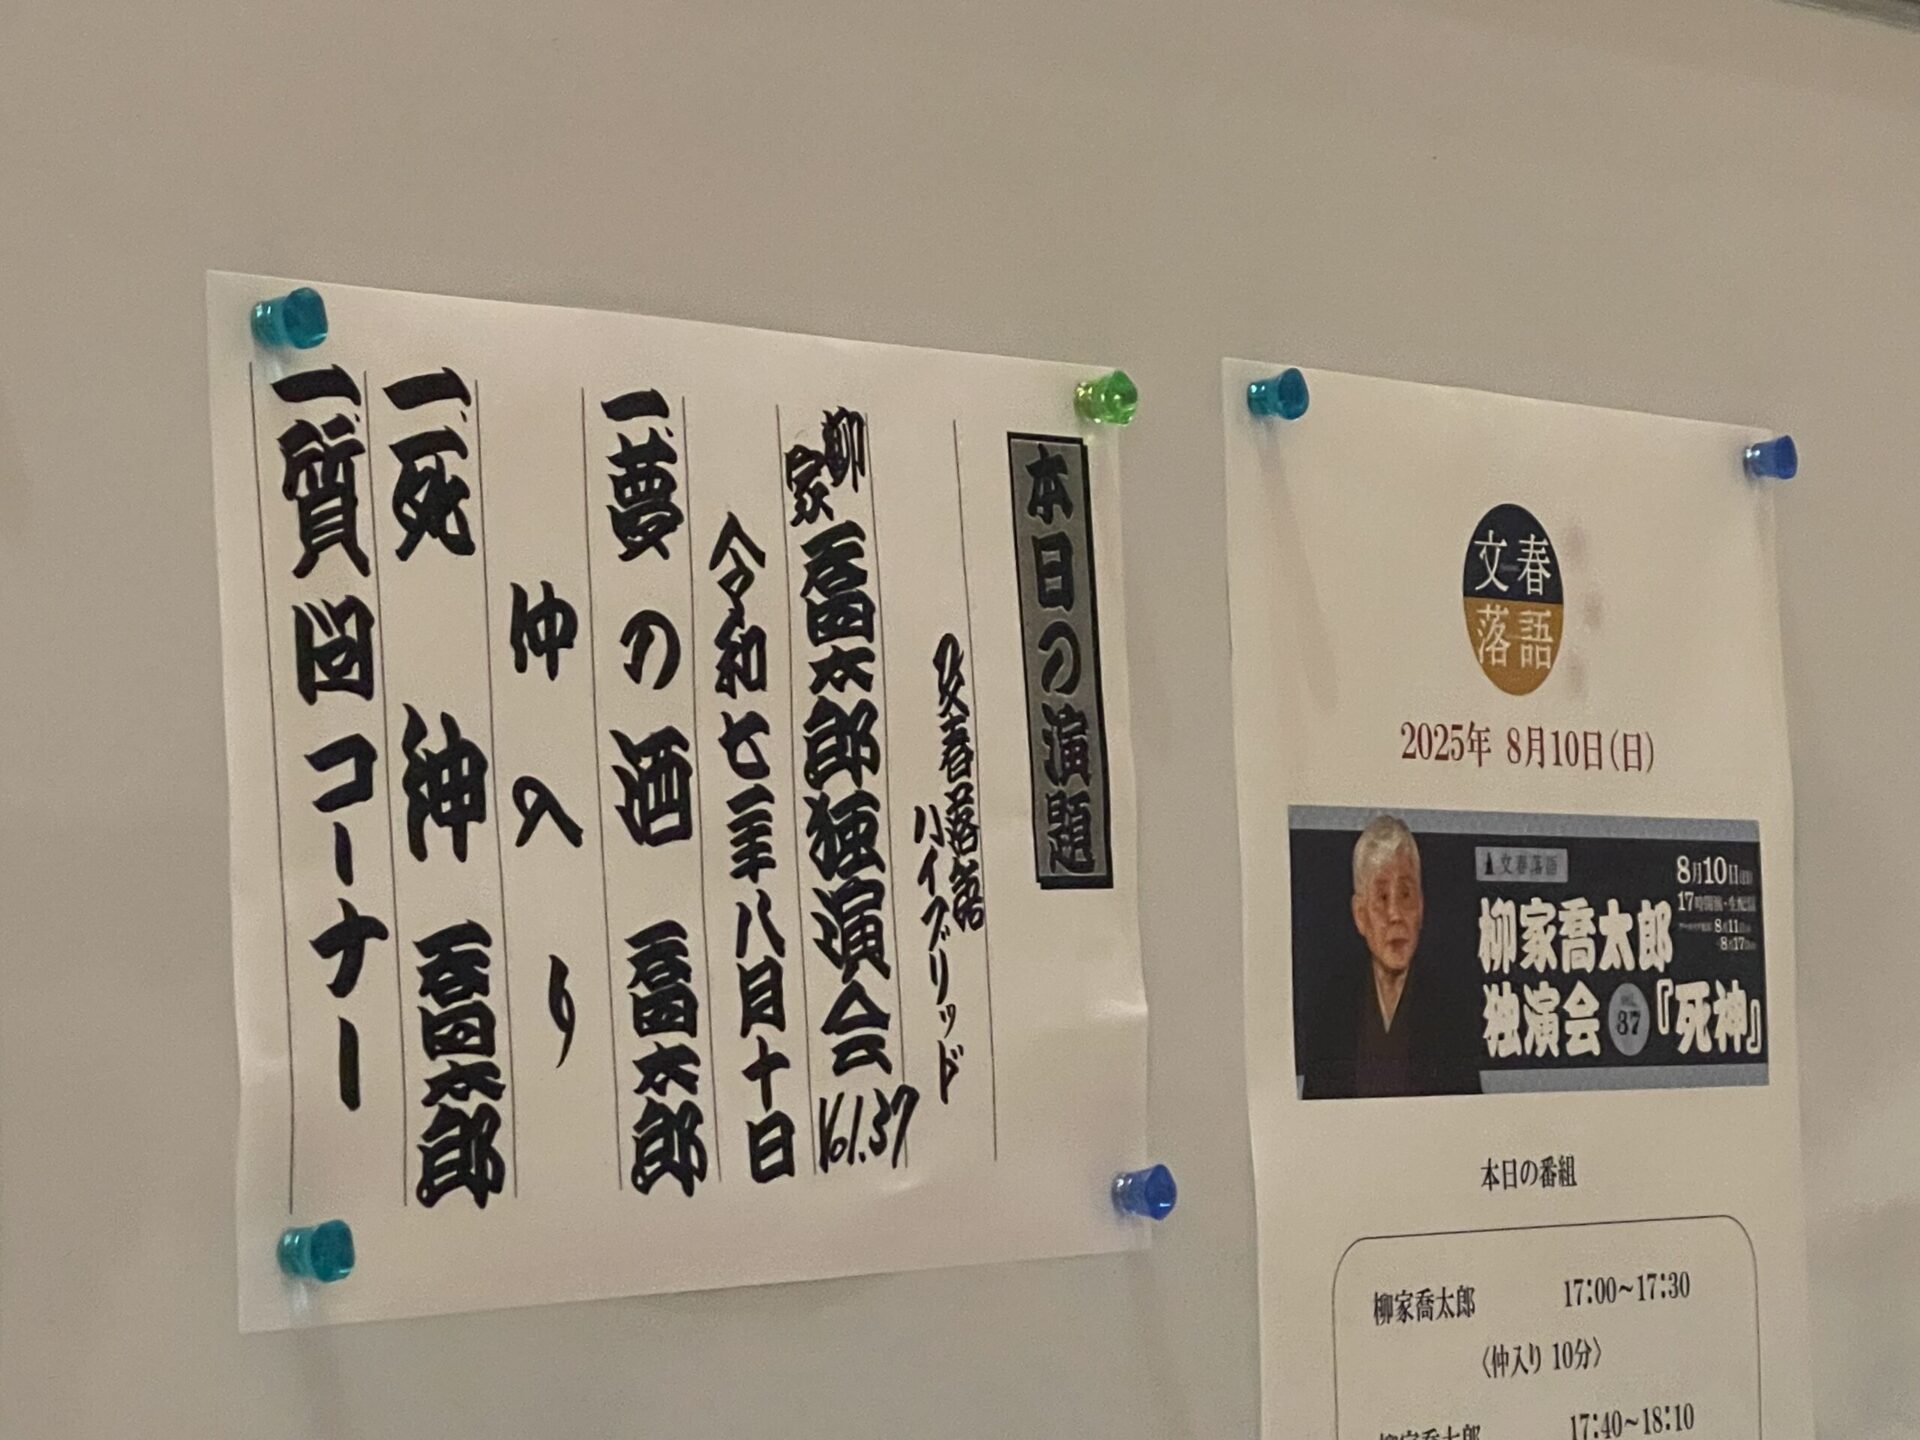 本日の演題
文春落語
ハイブリッド
柳家喬太郎独演会 Vol.37
令和七年八月十日
一、夢の酒 喬太郎
仲入り
一、死神 喬太郎
一、質図コーナー
文春
落語
2025年 8月10日(日)
文春落語
8月10日(日)
17時開演・生配信
8月11日
8月17日
柳家喬太郎
独演会 VOL. 37 『死神』
本日の番組
柳家喬太郎 17:00~17:30
〈仲入り 10分〉
柳家喬太郎 17:40~18:10